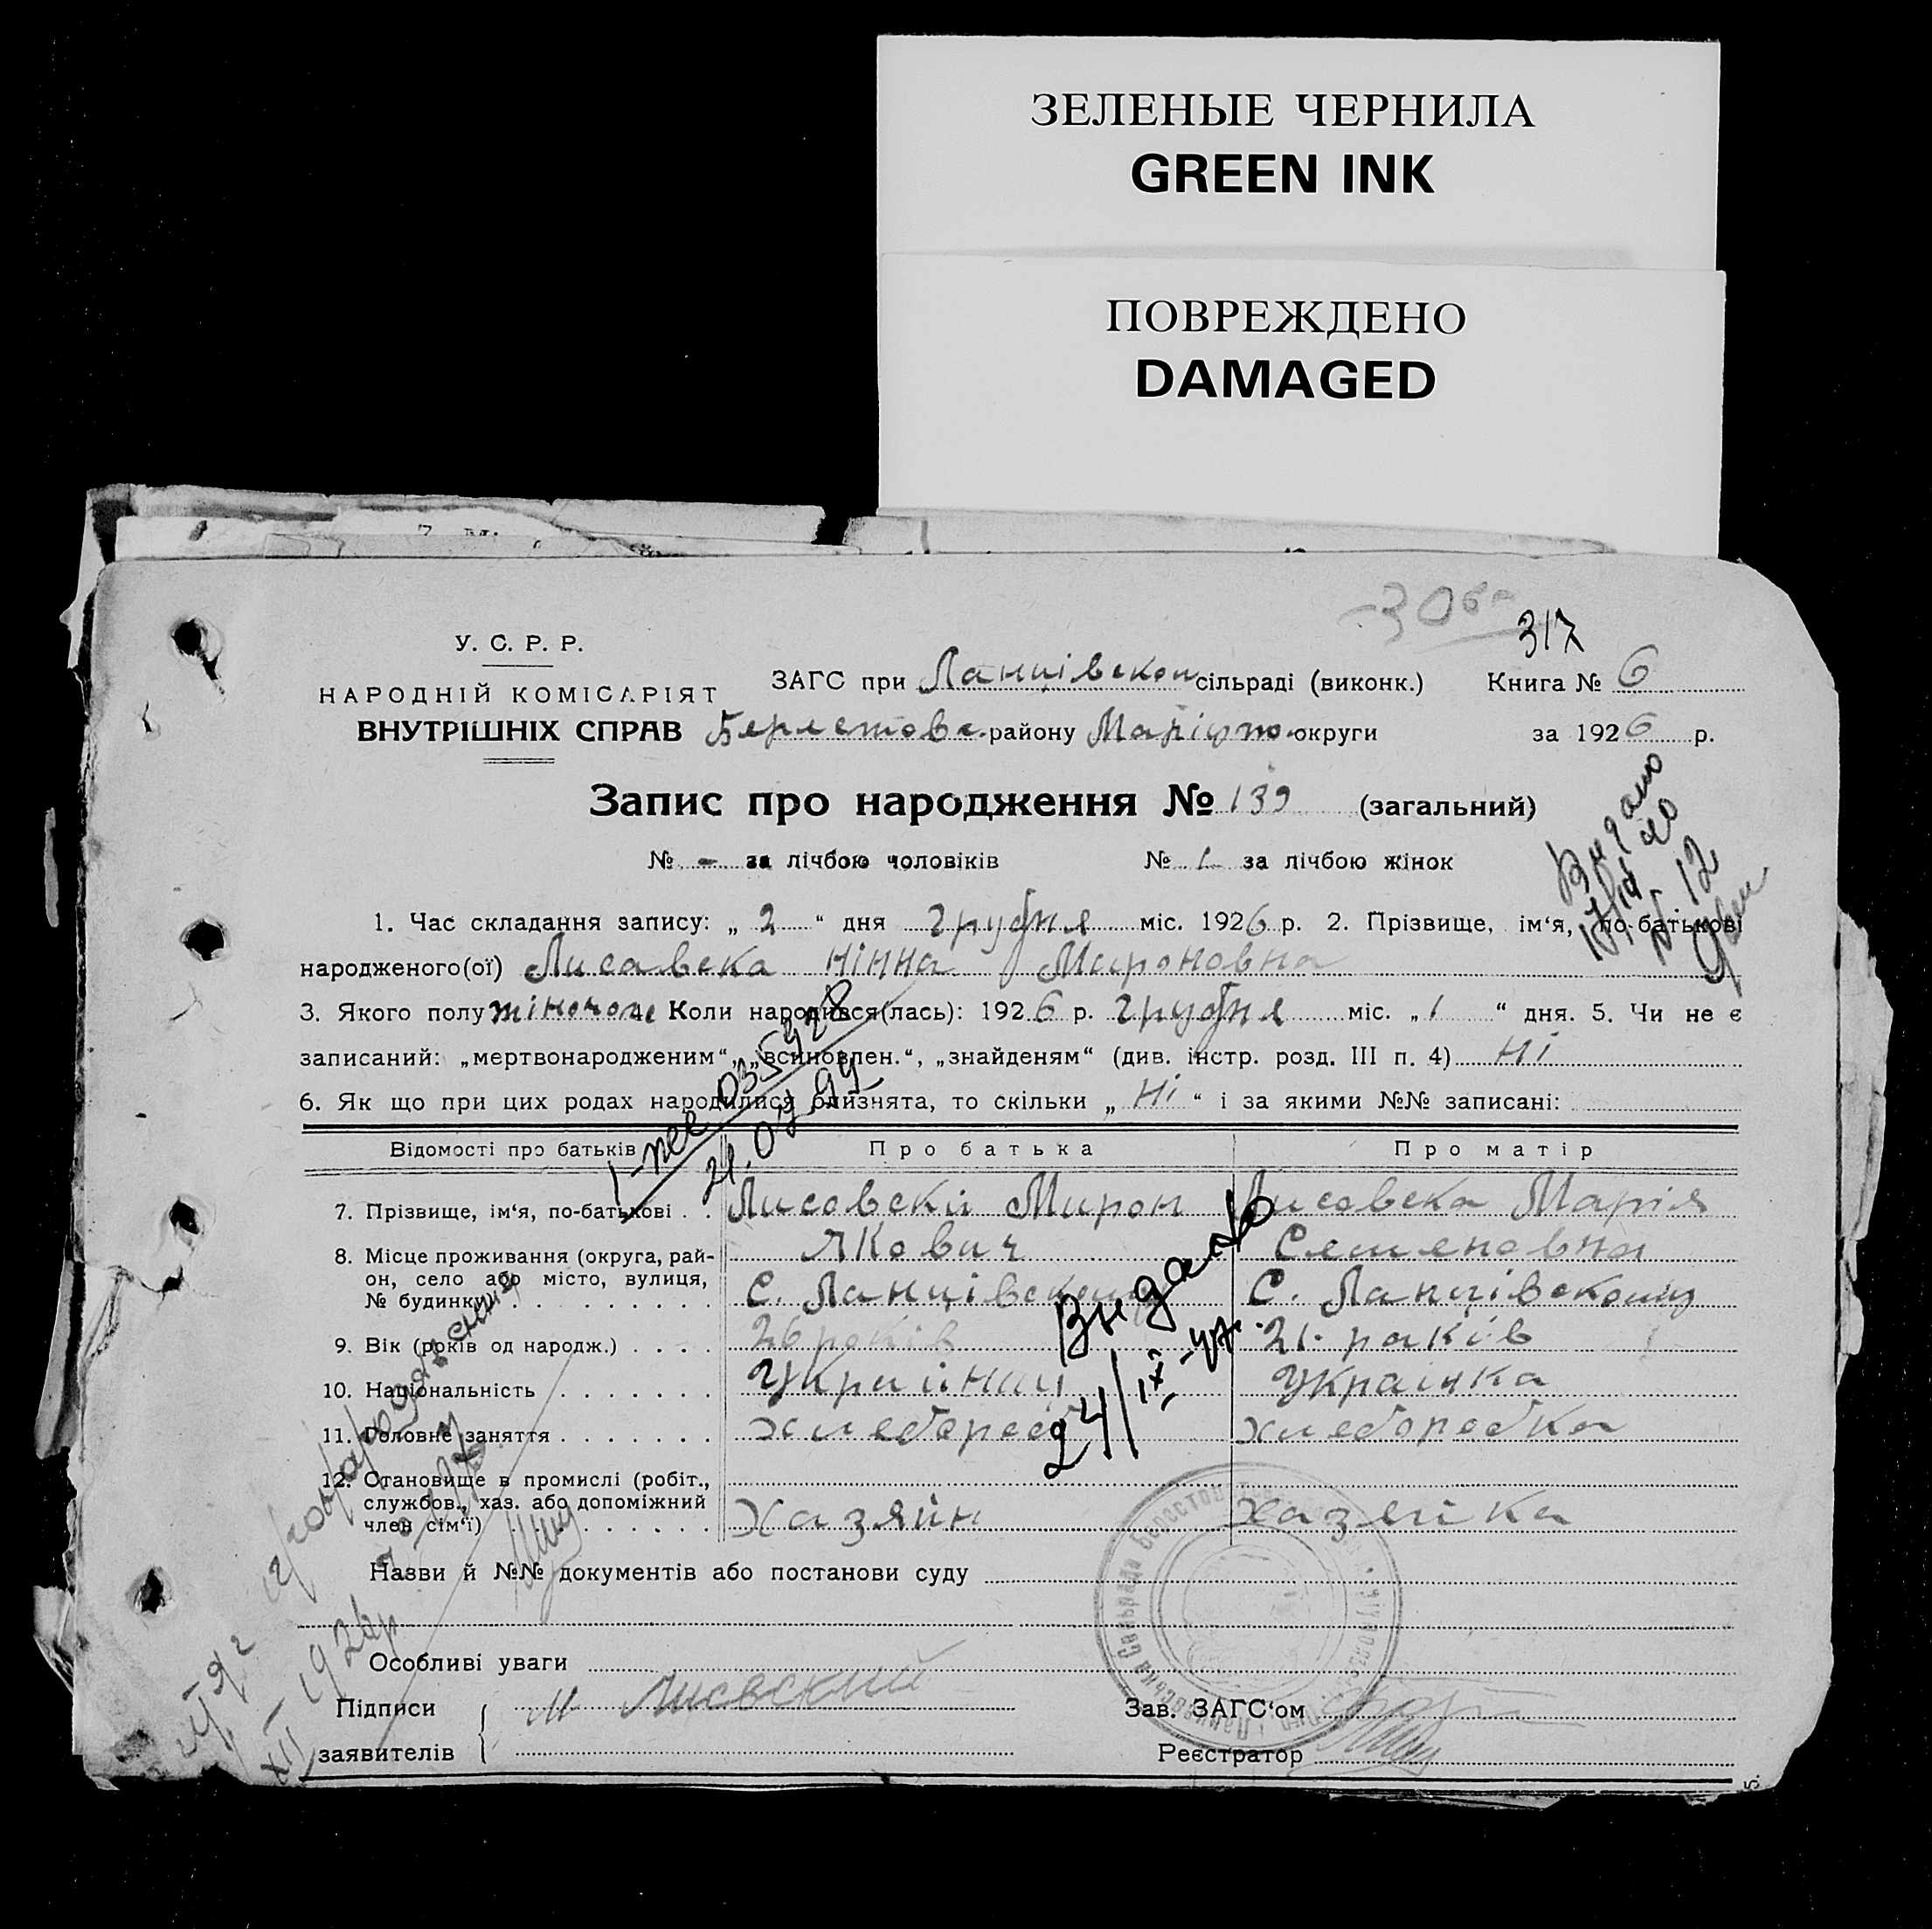 ЗЕЛЕНЫЕ ЧЕРНИЛА
GREEN INK
ПОВРЕЖДЕНО
DAMAGED
317
У. С. Р. Р.
НАРОДНІЙ КОМІСАРІЯТ
ВНУТРІШНІХ СПРАВ
ЗАГС при Ланцівскои сільраді (виконк.) Книга № 6
Берестове. району Маріупо. округи за 1926 р.
Запис про народження № 139 (загальний)
№ - за лічбою чоловіків № 1 за лічбою жінок
Видано
№ 12
1. Час складання запису: „ 2 “ дня грудня міс. 1926 р. 2. Прізвище, ім‘я, по-батькові
народженого(ої) Лисавска Нінна Мироновна
3. Якого полу жіночого 4. Коли народився(лась): 1926 р. грудня міс. „ 1 “ дня. 5. Чи не є
записаний: „мертвонародженим“, „всиновлен.“, „знайденям“ (див. інстр. розд. III п. 4) Ні
6. Як що при цих родах народилися близнята, то скільки „ Ні “ і за якими №№ записані:
035928
Відомості про батьків Про батька Про матір
7. Прізвище, ім‘я, по-батькові . . Лисовски Мирон Лисовска Марія
Якович Семеновна
8. Місце проживання (округа, рай-
он, село або місто, вулиця,
№ будинку) . . . . . . . . . С. Ланцівскому С. Ланцівскому
9. Вік (років од народж.) . . . . 26 років 21. раків
10. Національність . . . . . . . Украйнец Украінка
11. Головне заняття . . . . . . . хлебороб хлеборобка
Видано
24/IX-47.
12. Становище в промислі (робіт.,
службов., хаз. або допоміжний
член сім‘ї) . . . . . . . . . Хазяйн Хазяіка
Назви й №№ документів або постанови суду
Особливі уваги
1926р
XII
Підписи М Лисвский Зав. ЗАГС‘ом
заявителів Реєстратор